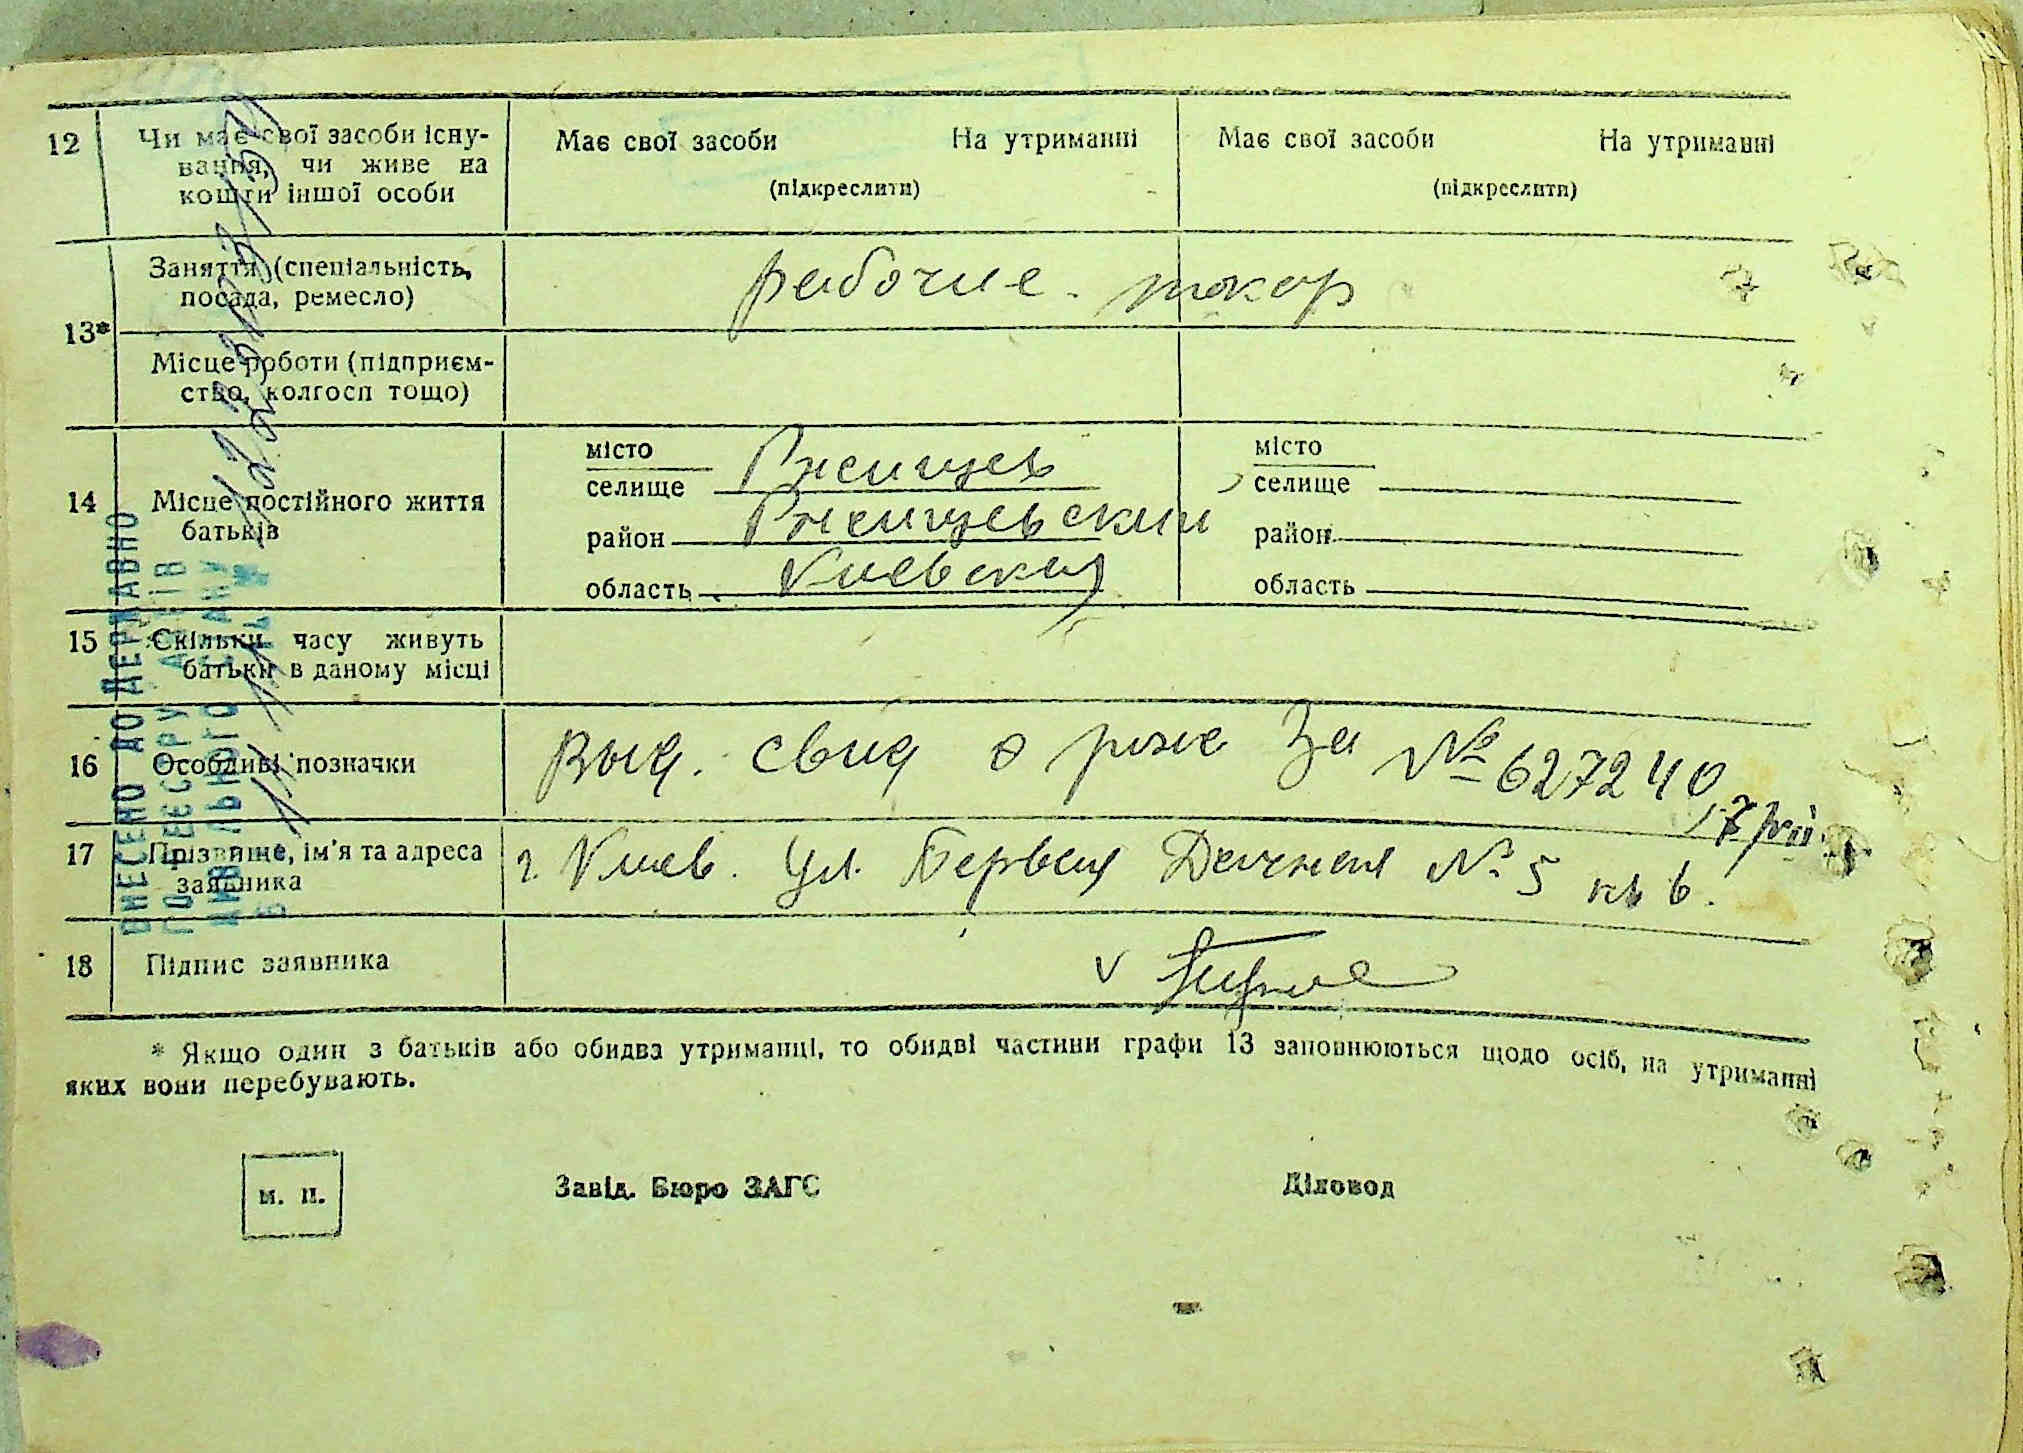 12 Чи має свої засоби існу- Має свої засоби На утриманні Має свої засоби На утриманні
вання, чи живе на
кошти іншої особи (підкреслити) (підкреслити)
Заняття (спеціальність, рабочие. токар
посада, ремесло)
13*
Місце роботи (підприєм-
ство, колгосп тощо)
місто Ржищев місто
селище селище
14 Місце постійного життя
батьків
район Ржищевский район
область Киевская область
15 Скільки часу живуть
батьки в даному місці
16 Особливі позначки Выд. свид о рож За № 627240
17 Прізвище, ім'я та адреса г. Киев. ул. Первая Дачная № 5 кв 6.
заявника
18 Підпис заявника v
* Якщо один з батьків або обидва утриманці, то обидві частини графи 13 заповнюються щодо осіб, на утриманні
яких вони перебувають.
м. п. Завід. Бюро ЗАГС Діловод
ВНЕСЕНО ДО ДЕРЖАВНО
ГО РЕЄСТРУ АКТІВ
ЦИВІЛЬНОГО СТАНУ